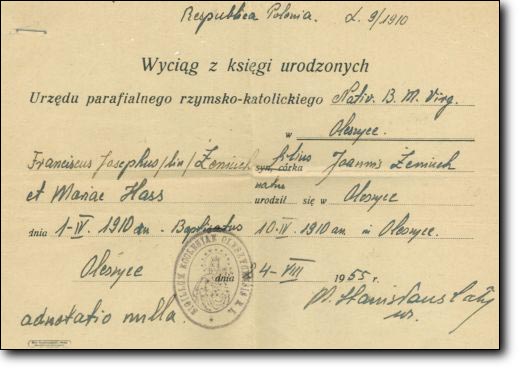 Respublica Polonia. L. 9/1910
Wyciąg z księgi urodzonych
Urzędu parafialnego rzymsko-katolickiego Nativ. B. M. Virg.
w Oleszyce.
Franciscus Josephus /bin/ Żeniuch syn, córka filius Joannis Żeniuch
et Mariae Hass natus urodził się w Oleszyce
dnia 1-IV. 1910 an. Baptisatus 10-IV. 1910 an. in Oleszyce.
Oleszyce dnia 24-VIII 1955 r.
adnotatio nulla. P. Stanislaus